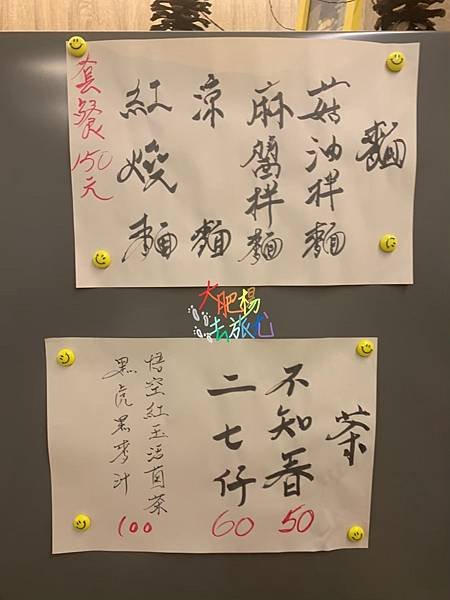 麵
菇油拌麵
麻醬拌麵
涼麵
紅燒麵
套餐150元
大肥楊
去旅行
茶
不知春
50
二七仔
60
悟空紅玉活菌茶
黑虎黑麥汁
100